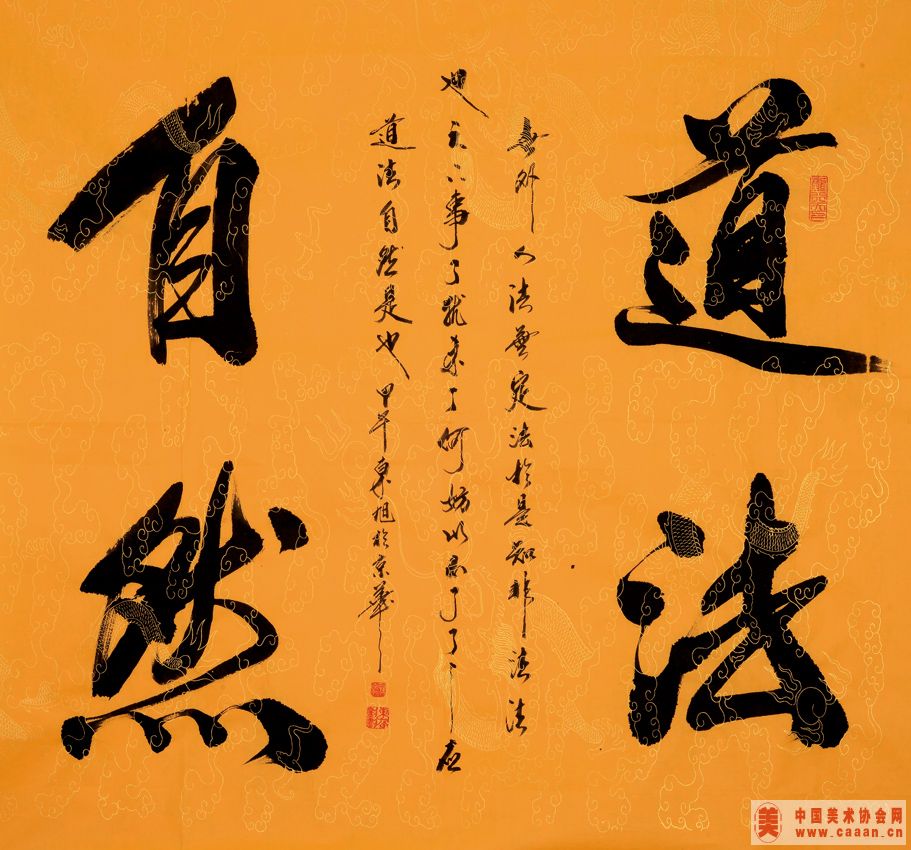 道法
自然
世外人法無定法於是知非法法
也天下事了猶未了何妨以不了了之應
道法自然是也甲午東旭於京華
中国美术协会网
www.caaan.cn